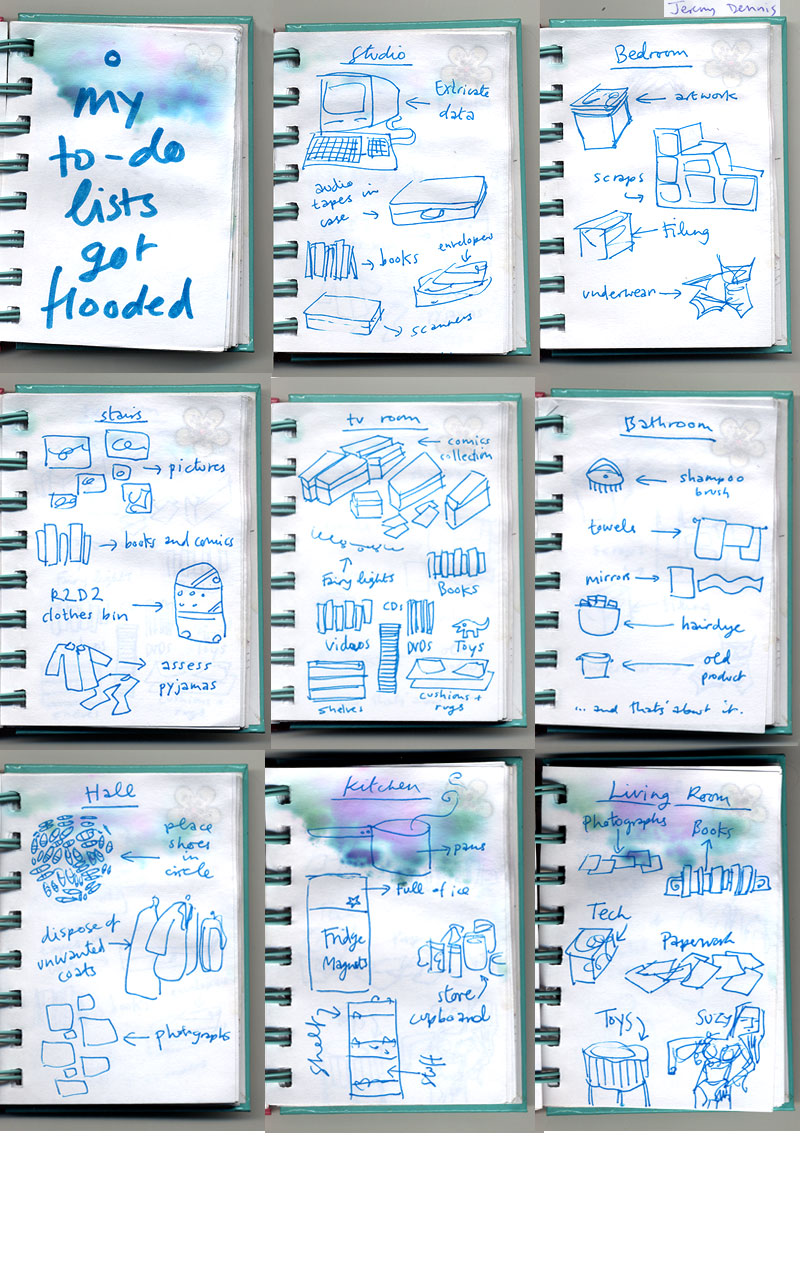 Jeremy Dennis
o
my
to-do
lists
got
flooded
Studio
Extricate
data
audio
tapes in
case
books
envelopes
scanners
Bedroom
artwork
scraps
Filing
underwear
stairs
pictures
books and comics
R2D2
clothes bin
assess
pyjamas
tv room
comics
collection
Fairy lights
Books
CDs
videos
DVDs
Toys
shelves
cushions +
rugs
Bathroom
shampoo
brush
towels
mirrors
hairdye
old
product
... and that's about it.
Hall
place
shoes
in
circle
dispose of
unwanted
coats
photographs
Kitchen
pans
Full of ice
Fridge
Magnets
store
cupboard
shelf
stuff
Living Room
Photographs
Books
Tech
Paperwork
Toys
Suzy